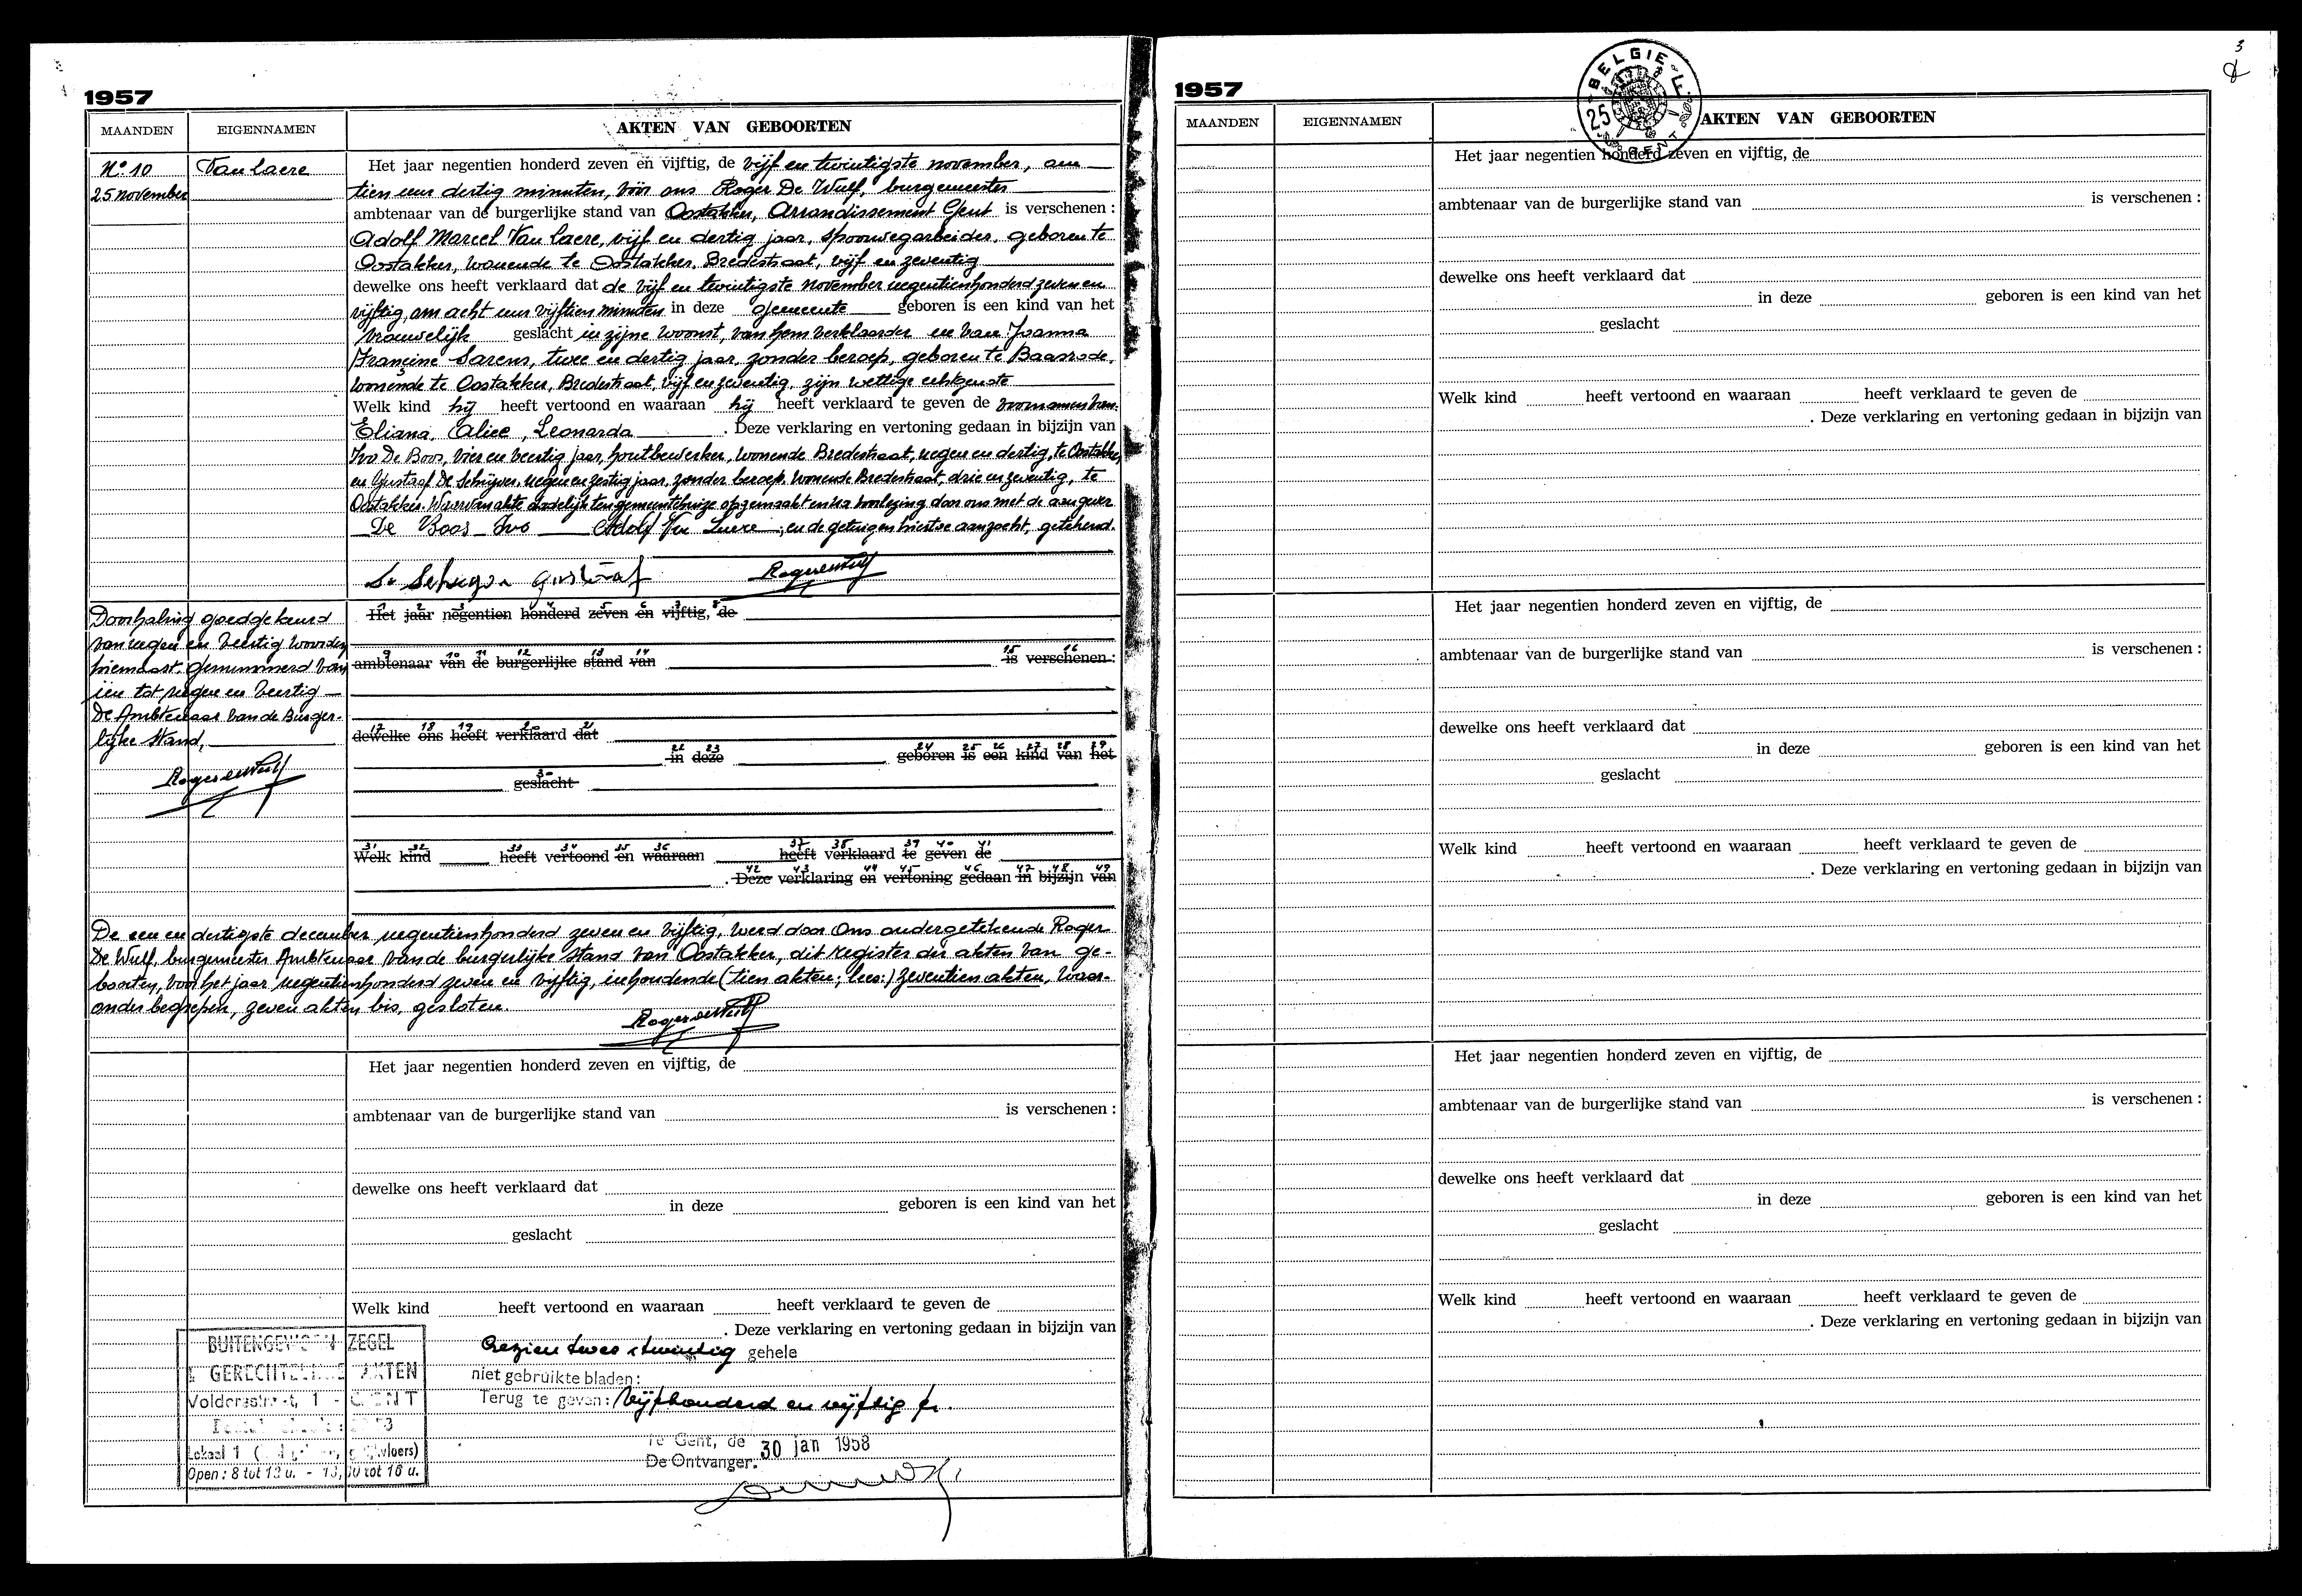 1957
MAANDEN EIGENNAMEN AKTEN VAN GEBOORTEN
N° 10 Van Laere Het jaar negentien honderd zeven en vijftig, de vijf en twintigste november, om
25 november tien uur dertig minuten, vóór ons Roger De Wulf, burgemeester
ambtenaar van de burgerlijke stand van Oostakker, Arrondissement Gent is verschenen :
Adolf Marcel Van Laere, vijf en dertig jaar, spoorwegarbeider, geboren te
Oostakker, wonende te Oostakker, Bredestraat, vijf en zeventig
dewelke ons heeft verklaard dat de vijf en twintigste november negentienhonderd zeven en
vijftig, om acht uur vijftien minuten in deze gemeente geboren is een kind van het
vrouwelijk geslacht in zijne woonst, van hem verklaarder en van Joanna
Francine Sarens, twee en dertig jaar, zonder beroep, geboren te Baasrode,
wonende te Oostakker, Bredestraat, vijf en zeventig, zijn wettige echtgenote
Welk kind hij heeft vertoond en waaraan hij heeft verklaard te geven de voornamen van
Eliana, Alice, Leonarda . Deze verklaring en vertoning gedaan in bijzijn van
Ivo De Boos, vier en veertig jaar, houtbewerker, wonende Bredestraat, negen en dertig, te Oostakker,
en Gustaaf De Schrijver, negen en zestig jaar, zonder beroep, wonende Bredestraat, drie en zeventig, te
Oostakker. Waarvan akte dadelijk ten gemeentehuize opgemaakt en na voorlezing door ons met de aangever
De Boos Ivo Adolf Van Laere ; en de getuigen hiertoe aanzocht, getekend.
Gustaaf Roger De Wulf
Het jaar negentien honderd zeven en vijftig, de
1 2 3 4 5 6 7 8
Doorhaling goedgekeurd
van negen en veertig woorden
hiernaast, genummerd van
één tot negen en veertig
De Ambtenaar van de Burger-
lijke Stand,
Roger De Wulf
9 10 11 12 13 14 15 16
ambtenaar van de burgerlijke stand van is verschenen :
17 18 19 20 21
dewelke ons heeft verklaard dat
22 23 24 25 26 27 28 29
in deze geboren is een kind van het
30
geslacht
31 32 33 34 35 36 37 38 39 40 41
Welk kind heeft vertoond en waaraan heeft verklaard te geven de
42 43 44 45 46 47 48 49
. Deze verklaring en vertoning gedaan in bijzijn van
De een en dertigste december negentienhonderd zeven en vijftig, werd door Ons ondergetekende Roger
De Wulf, burgemeester Ambtenaar van de burgerlijke stand van Oostakker, dit register der akten van ge-
boorten, voor het jaar negentienhonderd zeven en vijftig, inhoudende (tien akten; lees:) zeventien akten, waar-
onder begrepen, zeven akten bis, gesloten.
Roger De Wulf
Het jaar negentien honderd zeven en vijftig, de
ambtenaar van de burgerlijke stand van is verschenen :
dewelke ons heeft verklaard dat
in deze geboren is een kind van het
geslacht
Welk kind heeft vertoond en waaraan heeft verklaard te geven de
. Deze verklaring en vertoning gedaan in bijzijn van
BUITENGEWOON ZEGEL
GERECHTELIJKE AKTEN
Volderstraat, 1 - GENT
Lokaal 1
Open : 8 tot 12 u. - 13,30 tot 16 u.
Gezien twee twintig gehele
niet gebruikte bladen :
Terug te geven : Vijfhonderd en vijftig fr.
Te Gent, de 30 jan 1958
De Ontvanger.
3
1957
BELGIE
25 F
GENT
MAANDEN EIGENNAMEN AKTEN VAN GEBOORTEN
Het jaar negentien honderd zeven en vijftig, de
ambtenaar van de burgerlijke stand van is verschenen :
dewelke ons heeft verklaard dat
in deze geboren is een kind van het
geslacht
Welk kind heeft vertoond en waaraan heeft verklaard te geven de
. Deze verklaring en vertoning gedaan in bijzijn van
Het jaar negentien honderd zeven en vijftig, de
ambtenaar van de burgerlijke stand van is verschenen :
dewelke ons heeft verklaard dat
in deze geboren is een kind van het
geslacht
Welk kind heeft vertoond en waaraan heeft verklaard te geven de
. Deze verklaring en vertoning gedaan in bijzijn van
Het jaar negentien honderd zeven en vijftig, de
ambtenaar van de burgerlijke stand van is verschenen :
dewelke ons heeft verklaard dat
in deze geboren is een kind van het
geslacht
Welk kind heeft vertoond en waaraan heeft verklaard te geven de
. Deze verklaring en vertoning gedaan in bijzijn van